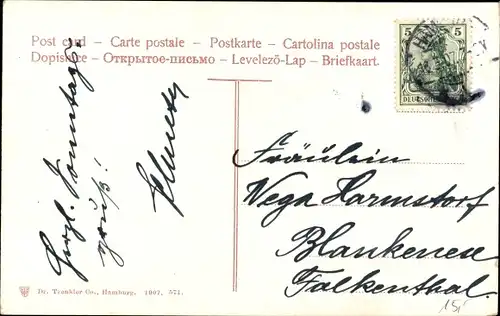 Post card – Carte postale – Postkarte – Cartolina postale
Dopisnice – Открытое-письмо – Levelezö-Lap – Briefkaart.
5 5
Herzl. Sonntags-
gruß!
Fräulein
Vega Harmstorf
Blankenese
Falkenthal.
Dr. Trenkler Co., Hamburg. 1907. 571.